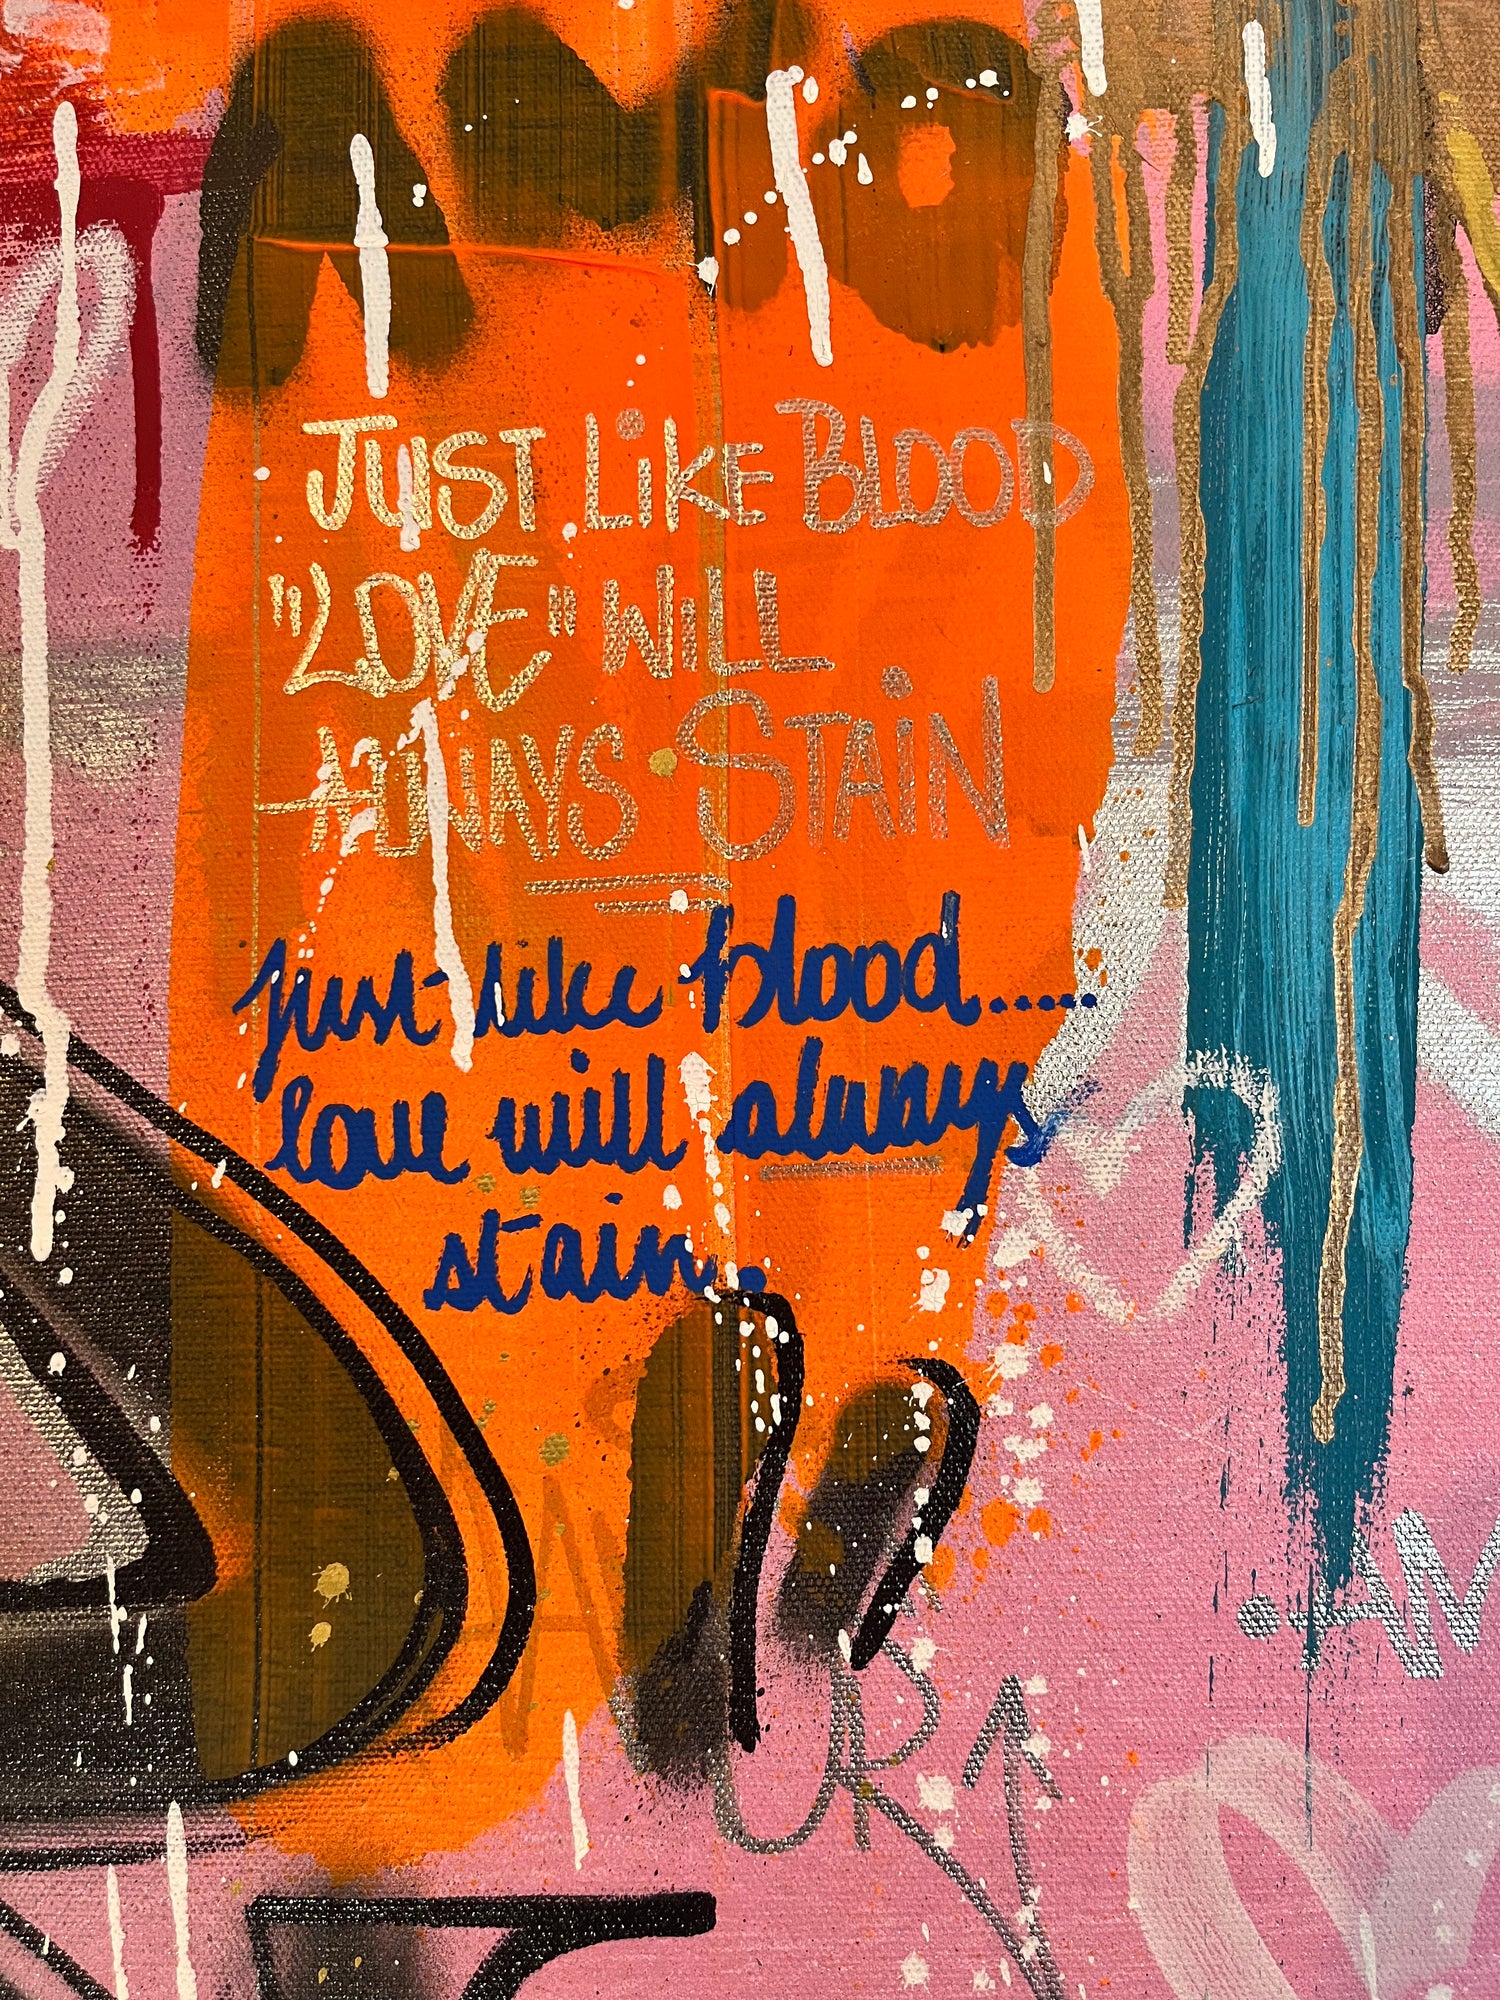 JUST LiKE BLOOD
"LOVE" WiLL
ALWAYS · STAiN
just like blood.....
love will always
stain.
.AM